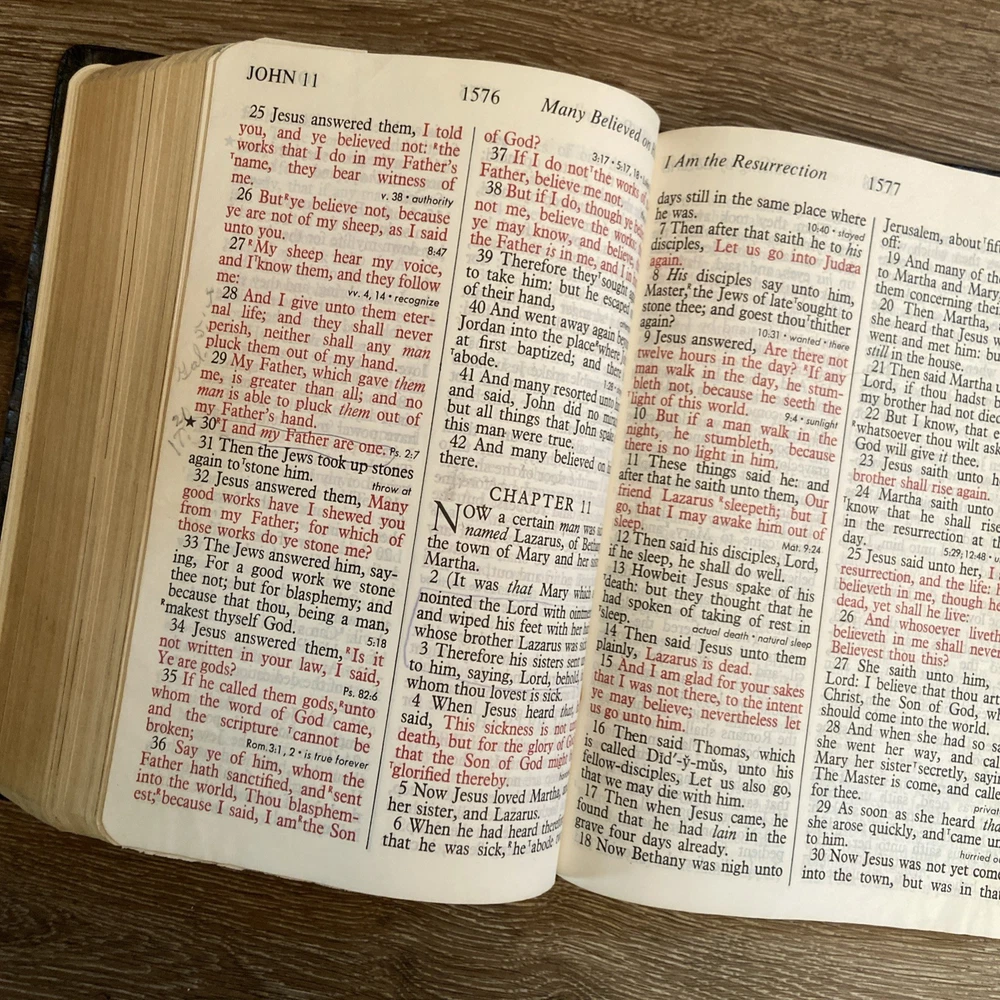 JOHN 11
1576
Many Believed on
25 Jesus answered them, I told
you, and ye believed not: ᴿthe
works that I do in my Father's
ᵀname, they bear witness of
me.
v. 38 • authority
26 Butᴿye believe not, because
ye are not of my sheep, as I said
unto you.
8:47
27ᴿMy sheep hear my voice,
and Iᵀknow them, and they follow
me:
vv. 4, 14 • recognize
28 And I give unto them eter-
nal life; and they shall never
perish, neither shall any man
pluck them out of my hand.
29 My Father, which gave them
me, is greater than all; and no
man is able to pluck them out of
my Father's hand.
★ 30ᴿI and my Father are one. Ps. 2:7
31 Then the Jews took up stones
again toᵀstone him.
throw at
32 Jesus answered them, Many
good works have I shewed you
from my Father; for which of
those works do ye stone me?
33 The Jews answered him, say-
ing, For a good work we stone
thee not; but for blasphemy; and
because that thou, being a man,
ᴿmakest thyself God.
5:18
34 Jesus answered them,ᴿIs it
not written in your law, I said,
Ye are gods?
Ps. 82:6
35 If he called them gods,ᴿunto
whom the word of God came,
and the scriptureᵀcannot be
broken;
Rom. 3:1, 2 • is true forever
36 Say ye of him, whom the
Father hath sanctified, andᴿsent
into the world, Thou blasphem-
est;ᴿbecause I said, I amᴿthe Son
of God?
3:17 • 5:17, 18
37 If I do notᵀthe works of
Father, believe me not.
38 But if I do, though ye
not me, believe the works:
ye may know, and believe,
the Father is in me, and I
39 Therefore theyᵀsought
to take him: but he escaped
of their hand,
40 And went away again
Jordan into the placeᴿwhere
at first baptized; and there
ᵀabode.
41 And many resorted unto
and said, John did no
but all things that John
this man were true.
42 And many believed on
there.
CHAPTER 11
NOW a certain man was
named Lazarus, of
the town of Mary and her
Martha.
2 (It was that Mary which
nointed the Lord with
and wiped his feet with her
whose brother Lazarus was
3 Therefore his sisters sent
to him, saying, Lord, behold,
whom thou lovest is sick.
4 When Jesus heard
said, This sickness is not
death, but for the glory of
that the Son of God might
ᵀglorified thereby.
5 Now Jesus loved Martha,
her sister, and Lazarus.
6 When he had heard
that he was sick,ᴿheᵀabode
I Am the Resurrection
1577
days still in the same place where
he was.
10:40 • stayed
7 Then after that saith he to his
disciples, Let us go into Judæa
again.
8 His disciples say unto him,
Master,ᴿthe Jews of lateᵀsought to
stone thee; and goest thouᵀthither
again?
10:31 • wanted • there
9 Jesus answered, Are there not
twelve hours in the day? ᴿIf any
man walk in the day, he stum-
bleth not, because he seeth the
ᵀlight of this world.
9:4 • sunlight
10 But if a man walk in the
night, he stumbleth, because
there is no light in him.
11 These things said he: and
after that he saith unto them, Our
friend Lazarus ᴿsleepeth; but I
go, that I may awake him out of
sleep.
Mat. 9:24
12 Then said his disciples, Lord,
if he sleep, he shall do well.
13 Howbeit Jesus spake of his
ᵀdeath: but they thought that he
had spoken of taking of rest in
ᵀsleep.
actual death • natural sleep
14 Then said Jesus unto them
plainly, Lazarus is dead.
15 And I am glad for your sakes
that I was not there, to the intent
ye may believe; nevertheless let
us go unto him.
16 Then said Thomas, which
is called Did´-ў-mŭs, unto his
fellow-disciples, Let us also go,
that we may die with him.
17 Then when Jesus came, he
found that he had lain in the
grave four days already.
18 Now Bethany was nigh unto
Jerusalem, about
off:
19 And many of
to Martha and Mary,
them concerning
20 Then Martha,
she heard that Jesus
went and met him: but
still in the house.
21 Then said Martha
Lord, if thou hadst
my brother had not
22 But I know, that
ᴿwhatsoever thou wilt ask
God will give it thee.
23 Jesus saith unto
brother shall rise again.
24 Martha saith unto
know that he shall rise
in the resurrection at
day.
5:29; 12:48
25 Jesus said unto her, I
resurrection, and the life:
believeth in me, though
dead, yet shall he live:
26 And whosoever liveth
believeth in me shall never
Believest thou this?
27 She saith unto him,
Lord: I believe that thou art
Christ, the Son of God,
should come into the world.
28 And when she had so
she went her way, and called
Mary her sisterᵀsecretly,
The Master is come, and
for thee.
29 As soon as she heard
she arose quickly, andᵀcame
to him.
hurried
30 Now Jesus was not yet come
into the town, but was in that